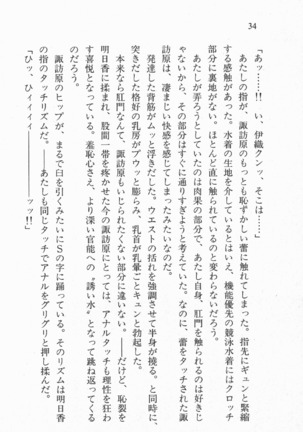 34
「あッ……!! い、伊織クンッ、そこは……」
あたしの指が、諏訪原のもっとも恥ずかしい蕾に触れてしまった。指先にギュンと緊縮
する感触があった。水着の生地を介してとはいえ、機能優先の競泳水着にはクロッチ
部分に裏地がない。ほとんど直に触れられているのと変わらないだろう。
あたしが弄ろうとしていたのは肉果の部分で、あたし自身、肛門を触られるのは好きじ
ゃないから、その部分はすぐに通りすぎようと考えていた。なのに、蕾をタッチされた諏
訪原は、凄まじい快感を感じてしまったみたいなのだ。
発達した背筋がムッと浮きだした。ウエストの括れを強調させて半身が撓る。と同時に、
突きだした格好の乳房がブウッと膨らみ、乳首が乳暈ごとキュンと勃起した。
本来なら肛門なんて、諏訪原もいじられたくない部分に違いない。――だけど、恥裂を
明日香に揉まれ、股間一帯を疼かせた今の諏訪原にとっては、アナルタッチも痺れを狂わ
す喜悦となっている。羞恥心さえ、より深い官能への〝誘い水〟となって跳ね返ってくる
のだろう。
諏訪原のヒップが、まるで臼を引くみたいにSの字に踊っている。そのリズムは明日香
の指のタッチリズムだ。――あたしも同じタッチでアナルをグリグリと押し揉んだ。
「ひッ、ひィィィィ―――――ッッ!!」